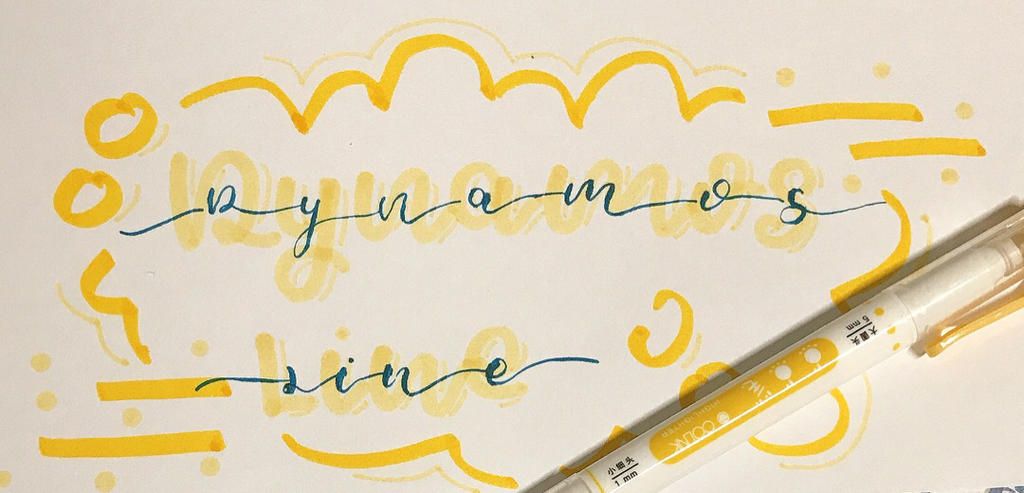 Dynamos
Line
大圆头
5 mm
COLINK
HIGHLIGHTER
小圆头
1 mm